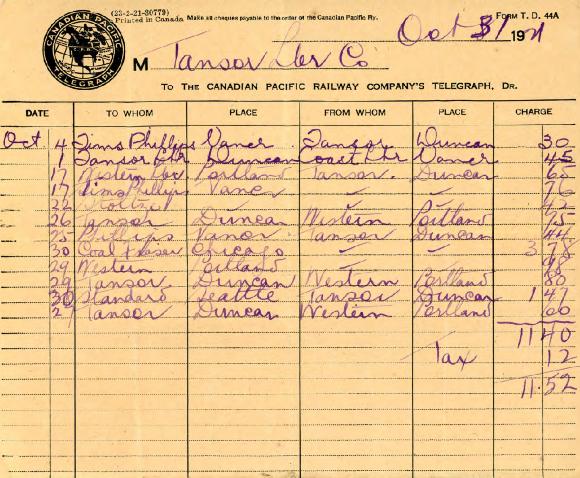 (23-2-21-80779)
Printed in Canada
Make all cheques payable to the order of the Canadian Pacific Ry.
FORM T. D. 44A
CANADIAN PACIFIC TELEGRAPH
Oct 31 1921
M Tansor Lbr Co
TO THE CANADIAN PACIFIC RAILWAY COMPANY'S TELEGRAPH, DR.
DATE TO WHOM PLACE FROM WHOM PLACE CHARGE
Oct 4 Tims Phillips Vancr Tansor Duncan 30
1 Tansor Lbr Duncan Coast Lbr Vancr 45
17 Western Lbr Portland Tansor. Duncan 60
17 Tims Phillips Vancr " " 76
22 " " 42
26 Tansor Duncan Western Portland 75
Phillips Vancr Tansor Duncan 44
30 Coal Fraser Chicago " " 3 78
29 Western Portland " "
29 Tansor Duncan Western Portland 80
30 Standard Seattle Tansor Duncan 1 47
27 Tansor Duncan Western Portland 60
11 40
Tax 12
11.52